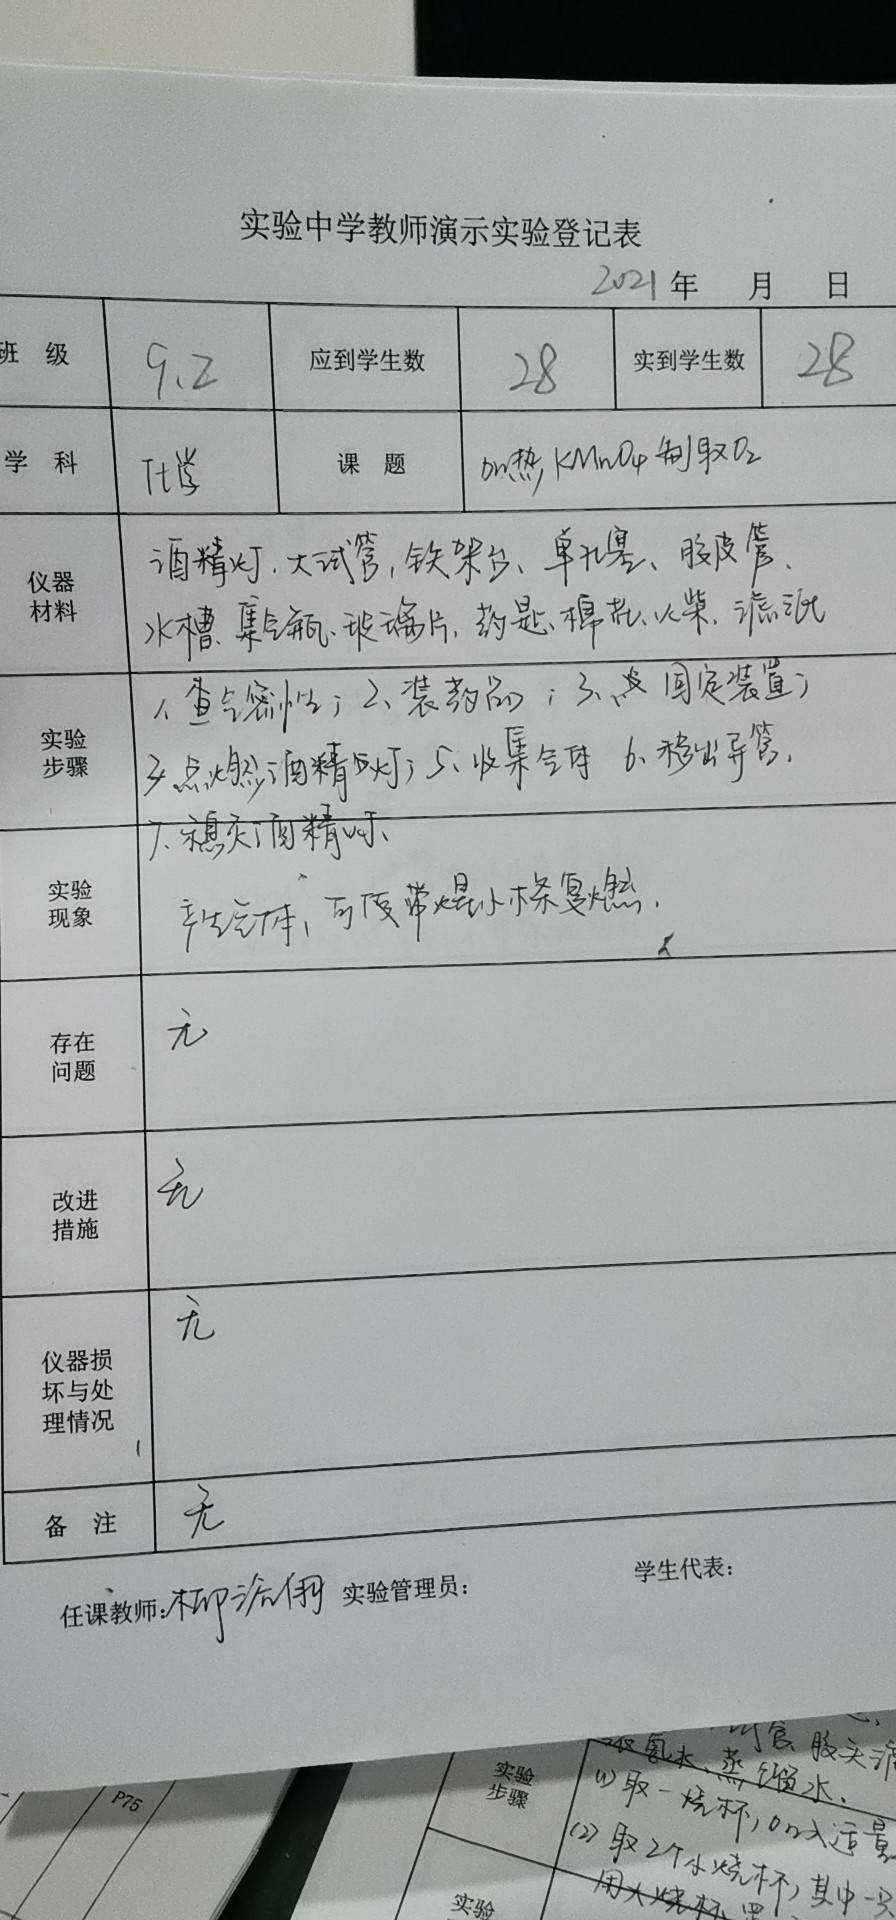 实验中学教师演示实验登记表
2021年 月 日
班 级 9.2 应到学生数 28 实到学生数 28
学 科 化学 课 题 加热KMnO4制取O2
仪器
材料
酒精灯、大试管、铁架台、单孔塞、胶皮管、
水槽、集气瓶、玻璃片、药匙、棉花、火柴、滤纸
实验
步骤
1、查气密性；2、装药品；3、固定装置；
4、点燃酒精灯；5、收集气体 6、移出导管、
7、熄灭酒精灯、
实验
现象
产生气体，可使带火星小木条复燃.
存在
问题
无
改进
措施
无
仪器损
坏与处
理情况
无
备 注 无
任课教师: 柳 实验管理员： 学生代表：
P75
实验
步骤
氨水、蒸馏水.
(1) 取一烧杯,加入适量
(2) 取2个小烧杯,其中一只
用大烧杯罩
实验